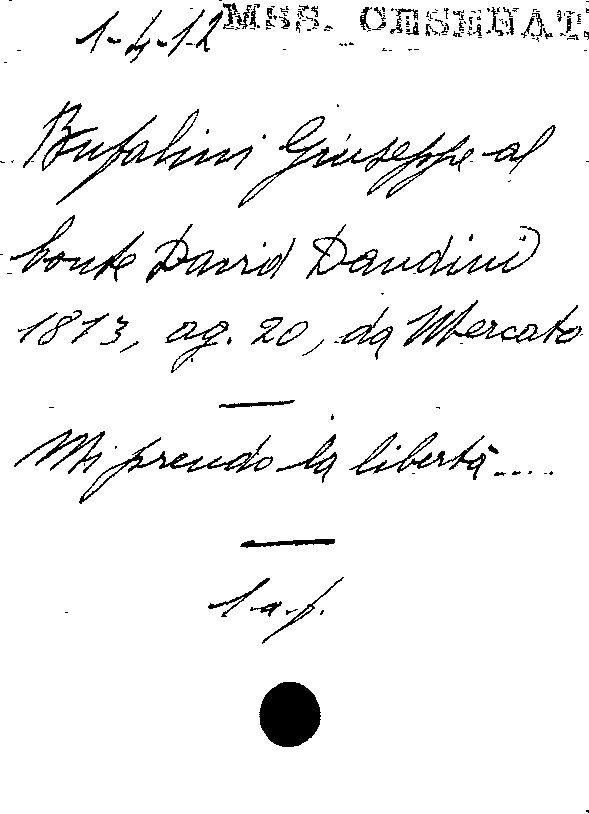 1-4-12 MSS. CESENAT.
Bufalini Giuseppe al
Conte David Dandini
1813, ag. 20, da Mercato
Mi prendo la libertà....
l.a.f.